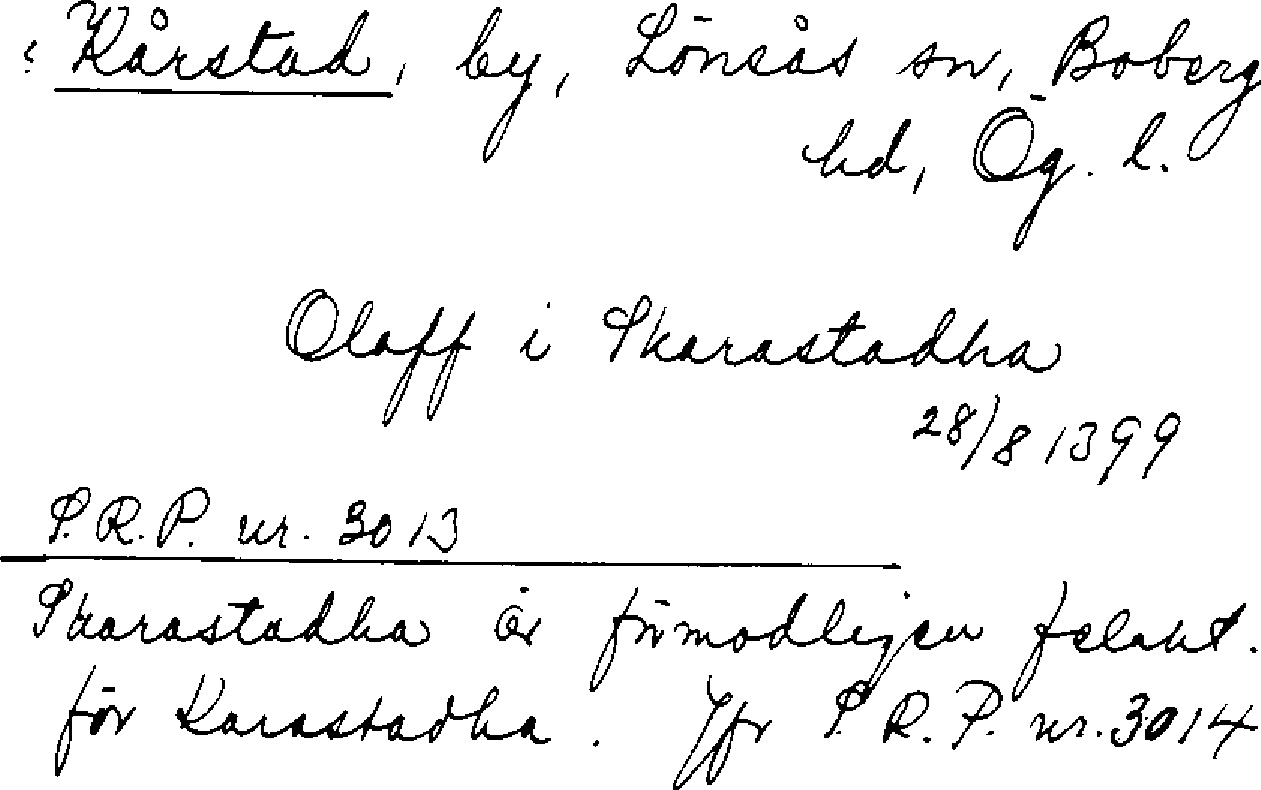 : Kårstad, by, Lönsås sn, Boberg
hd, Ög. l.
Olaff i Skarastadha
28/8 1399
S.R.P. nr. 3013
Skarastadha är förmodligen felskt.
för Karastadha. Jfr S.R.P. nr. 3014